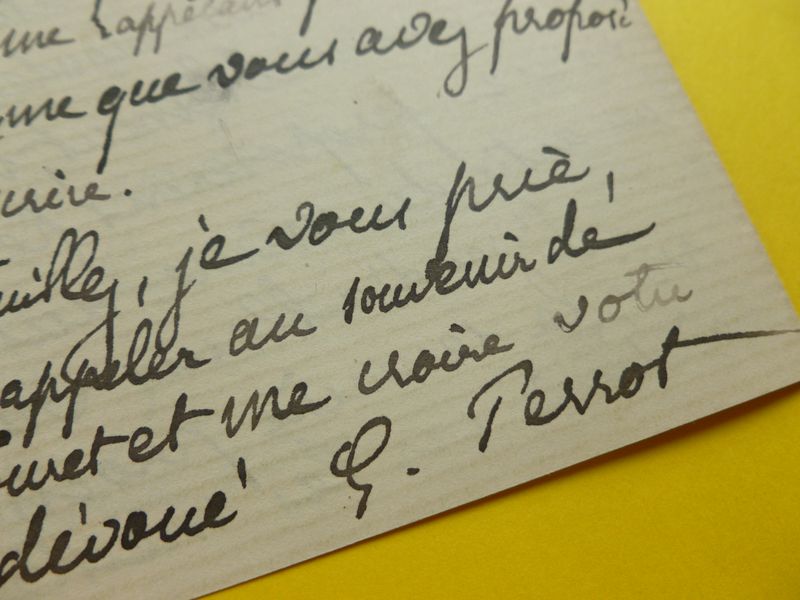 me rappelant
me que vous avez proposé
crire.
uillez, je vous priè,
appeler au souvenir dé
uret et me croire votre
dévoué G. Perrot